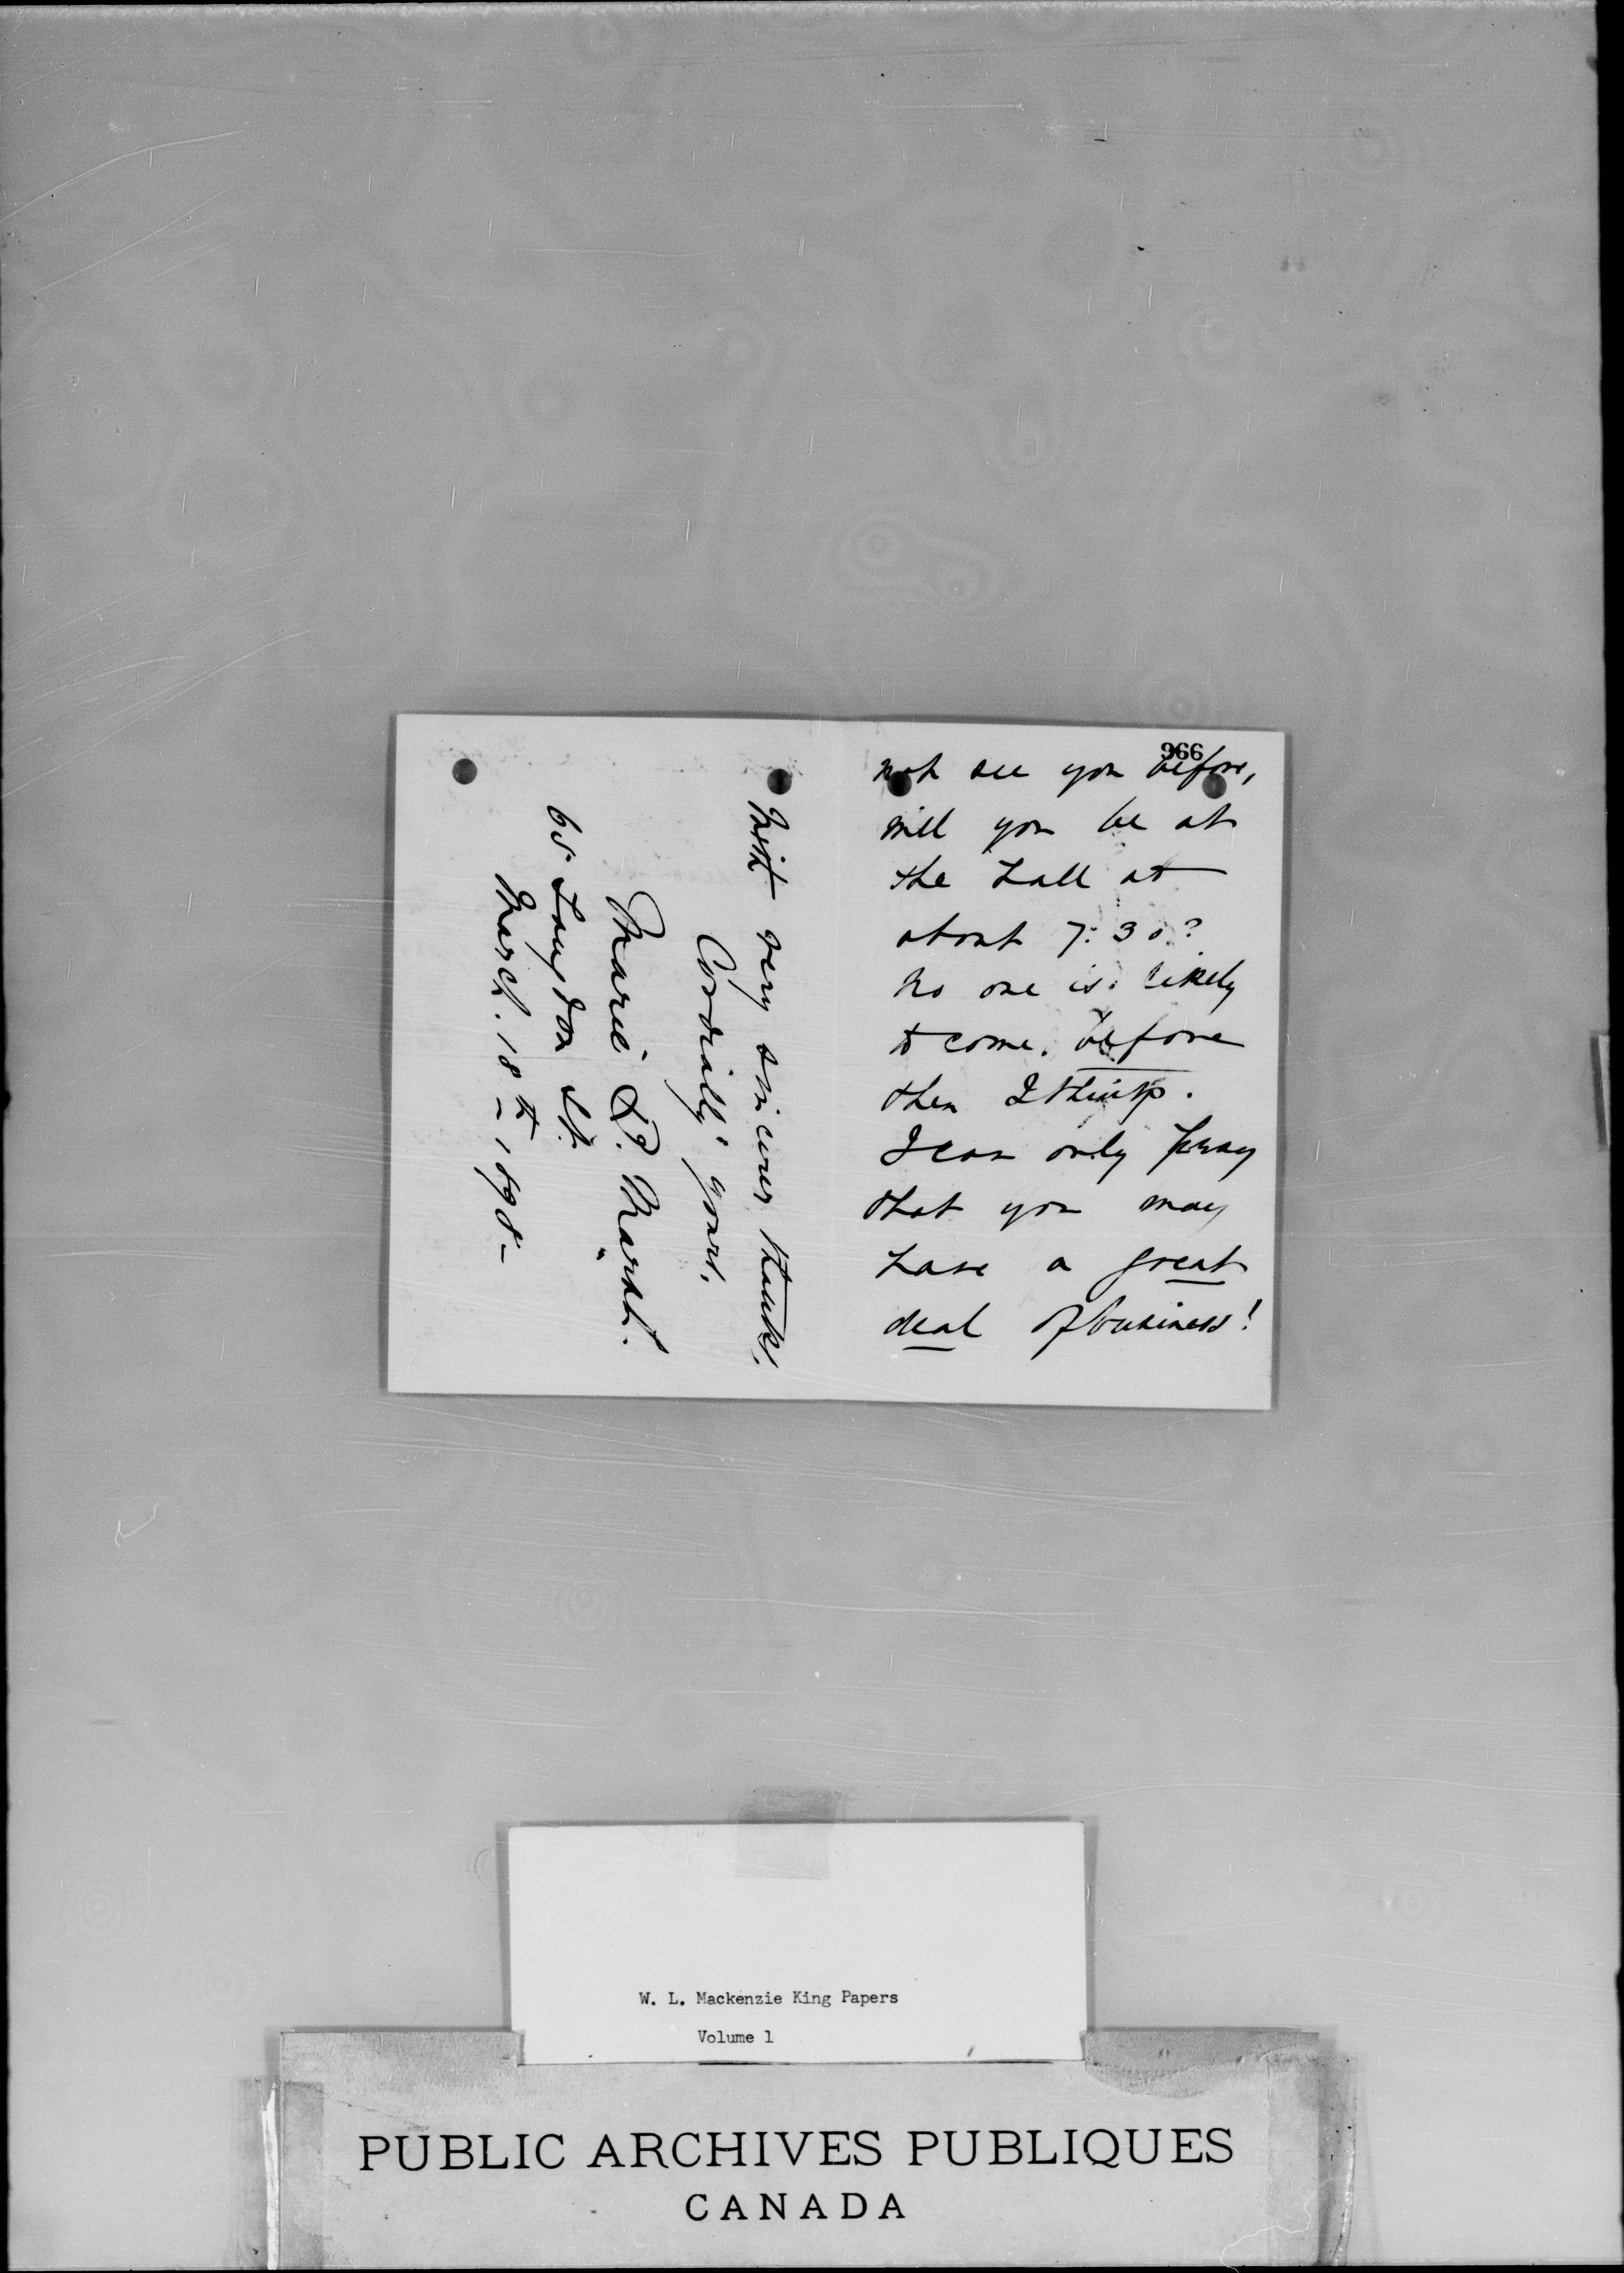 966
not see you before,
will you be at
the hall at
about 7:30?
No one is likely
to come before
then I think.
I can only pray
that you may
have a great
deal of business!
With very sincere thanks,
Cordially yours,
Marie L.
65 Langdon St.
March. 18th - 1898 -
W. L. Mackenzie King Papers
Volume 1
PUBLIC ARCHIVES PUBLIQUES
CANADA